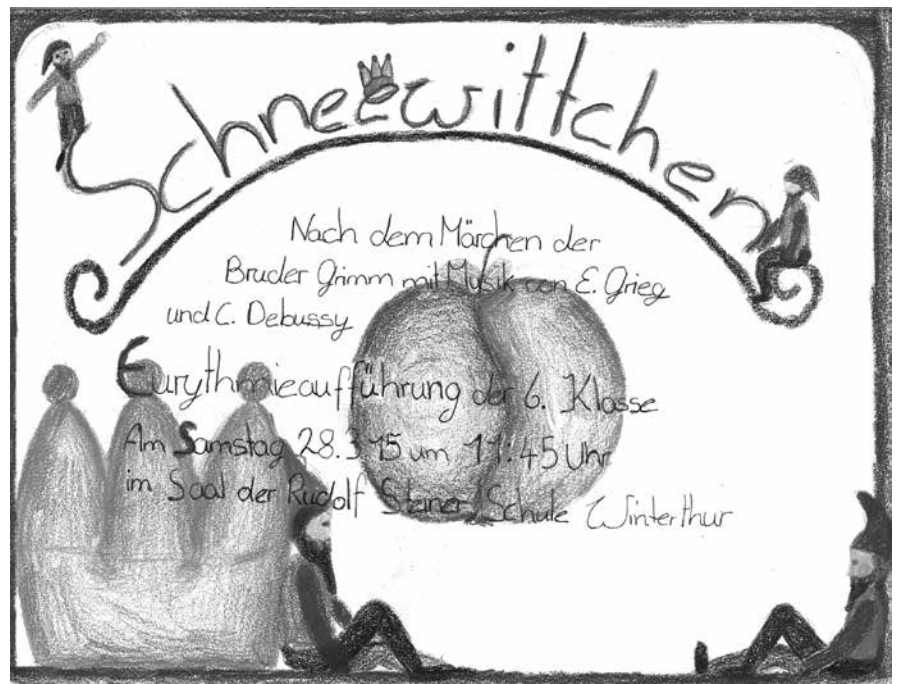 Schneewittchen
Nach dem Märchen der
Bruder Grimm mit Musik von E. Grieg
und C. Debussy
Eurythmieaufführung der 6. Klasse
Am Samstag 28.3.15 um 11:45 Uhr
im Saal der Rudolf Steiner Schule Winterthur